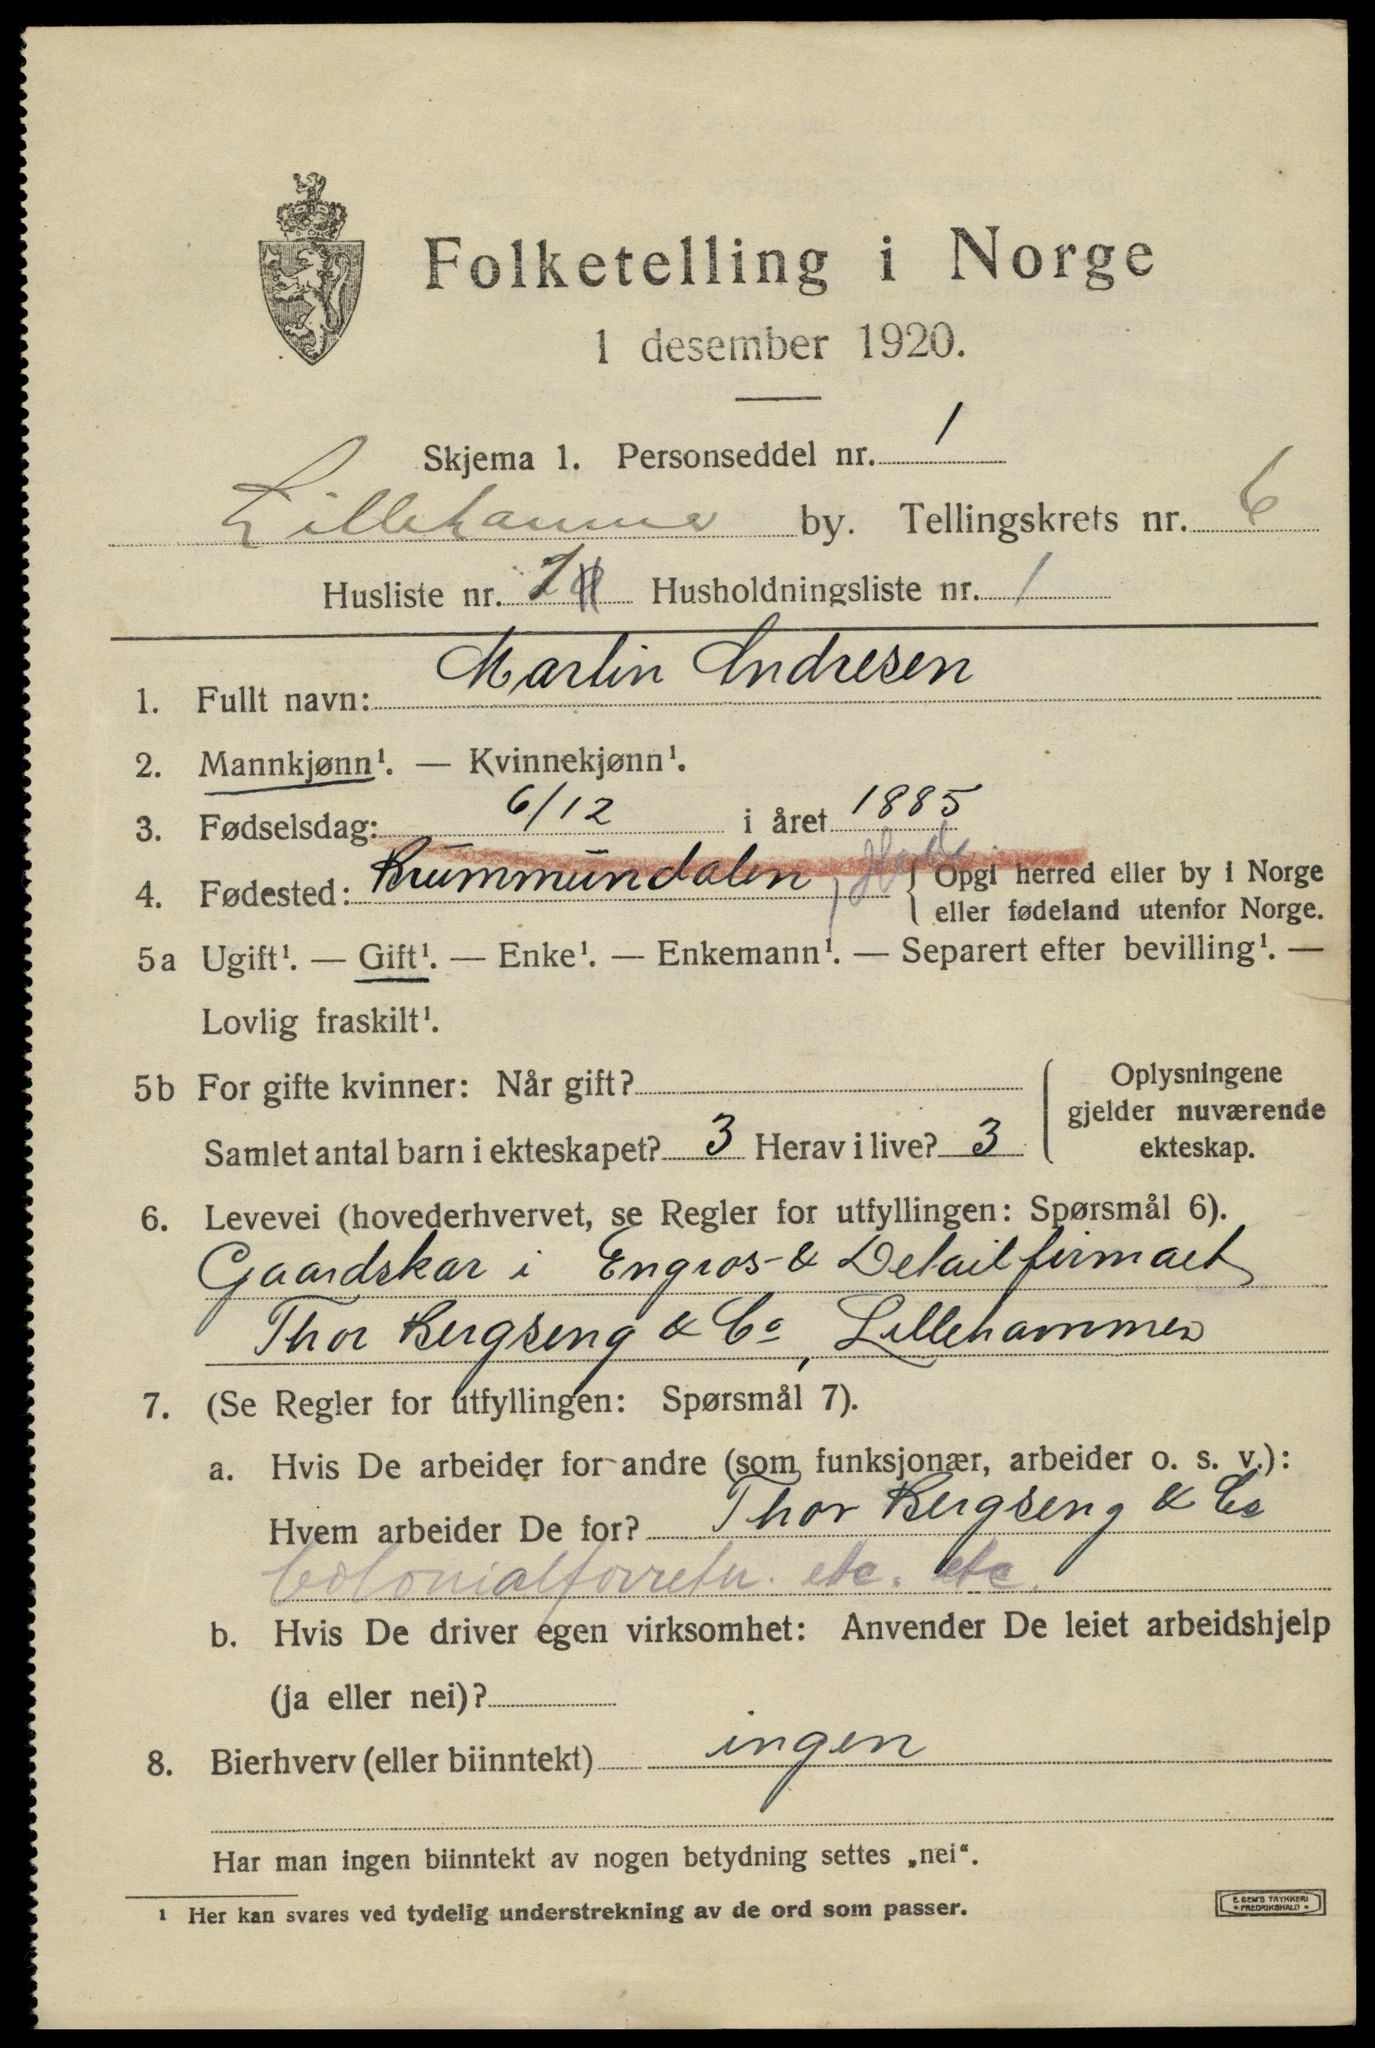 Folketelling i Norge
1 desember 1920.
Skjema 1. Personseddel nr. 1
Lillehammer by. Tellingskrets nr. 6
Husliste nr. 1 Husholdningsliste nr. 1
1. Fullt navn: Martin Andresen
2. Mannkjønn¹. — Kvinnekjønn¹.
3. Fødselsdag: 6/12 i året 1885
4. Fødested: Brummunddalen, { Opgi herred eller by i Norge
eller fødeland utenfor Norge.
5a Ugift¹. — Gift¹. — Enke¹. — Enkemann¹. — Separert efter bevilling¹. —
Lovlig fraskilt¹.
5b For gifte kvinner: Når gift?
Samlet antal barn i ekteskapet? 3 Herav i live? 3
{ Oplysningene
gjelder nuværende
ekteskap.
6. Levevei (hovederhvervet, se Regler for utfyllingen: Spørsmål 6).
Gaardskar i Engros- & Detailfirmaet
Thor Bergseng & Co, Lillehammer
7. (Se Regler for utfyllingen: Spørsmål 7).
a. Hvis De arbeider for andre (som funksjonær, arbeider o. s. v.):
Hvem arbeider De for? Thor Bergseng & Co
Colonialforretn. etc. etc.
b. Hvis De driver egen virksomhet: Anvender De leiet arbeidshjelp
(ja eller nei)?
8. Bierhverv (eller biinntekt) ingen
Har man ingen biinntekt av nogen betydning settes „nei“.
¹ Her kan svares ved tydelig understrekning av de ord som passer.
E. SEM'S TRYKKERI
FREDRIKSHALD